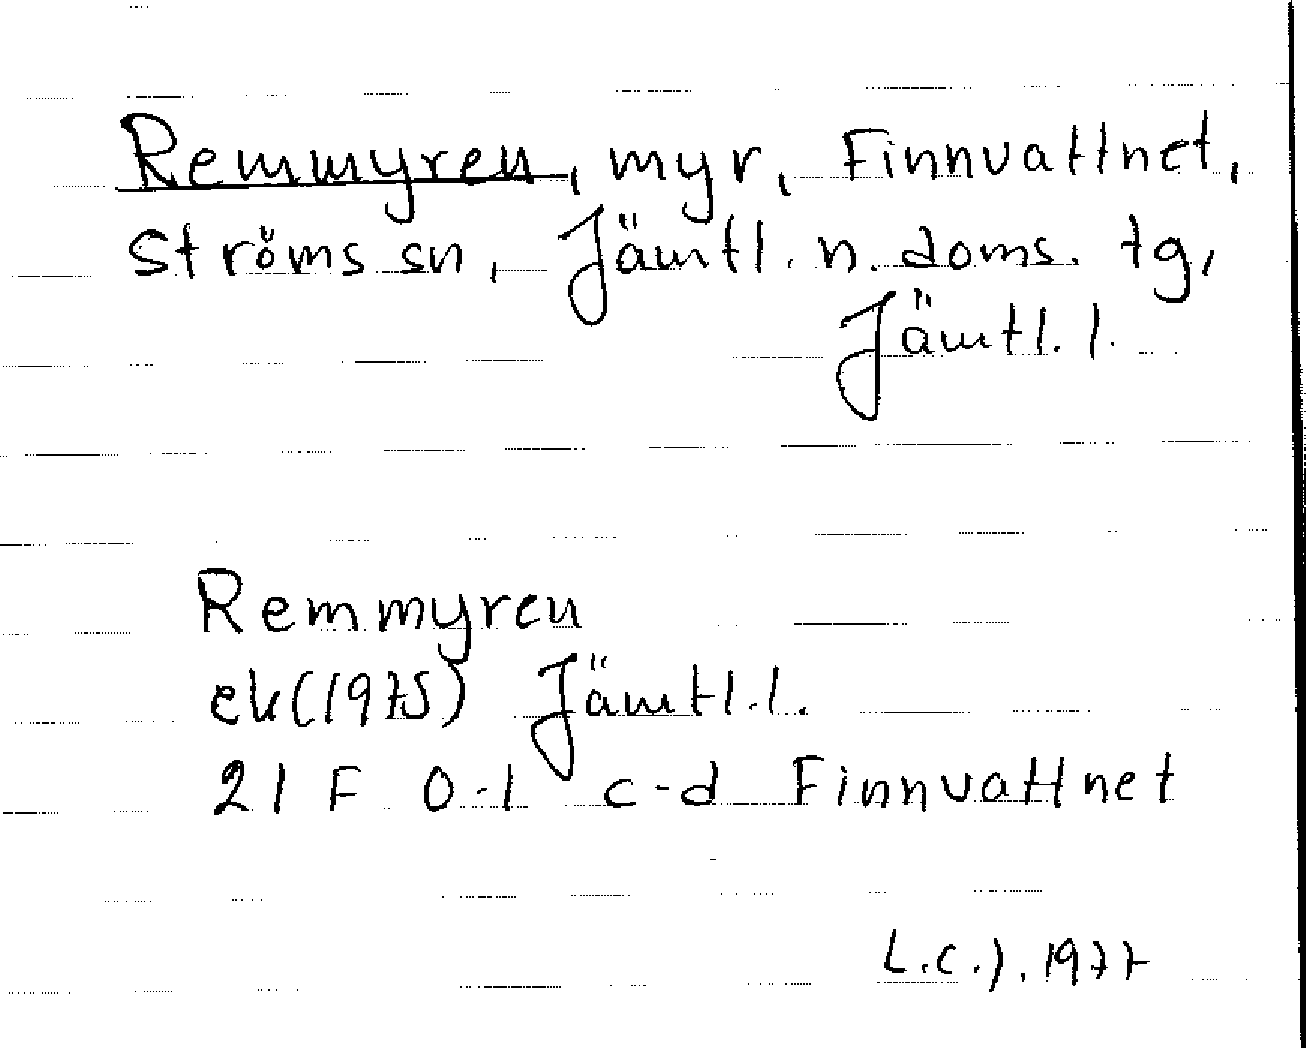 Remmyren, myr, Finnvattnet,
Ströms sn, Jämtl. n. doms. tg,
Jämtl. l.
Remmyren
ek (1975) Jämtl. l.
21 F 0-1 c-d Finnvattnet
L.C.J. 1977